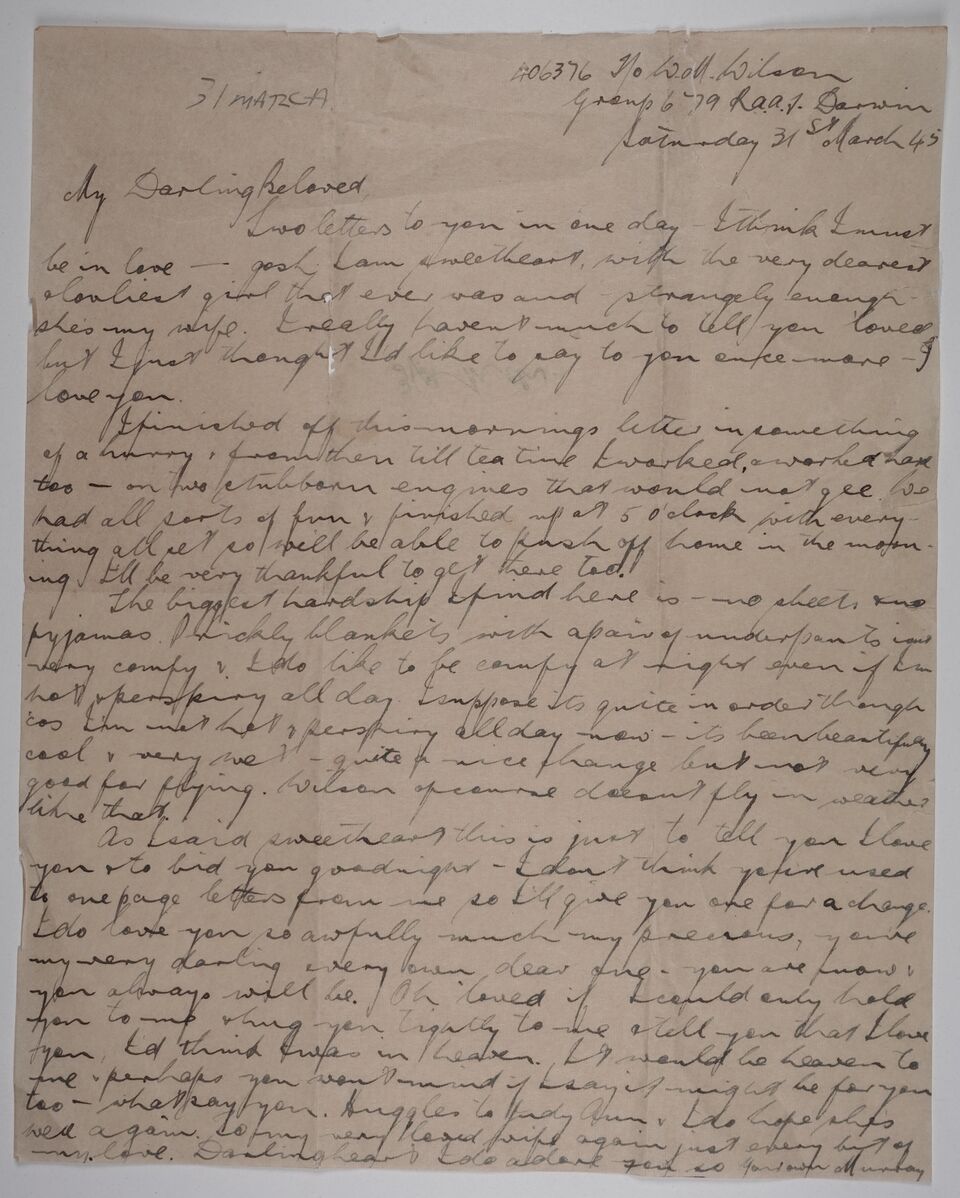 406376 F/o W.M. Wilson
31 MARCH.
Group 679 R.A.A.F. Darwin
Saturday 31st March 45
My Darling Beloved,
Two letters to you in one day - I think I must
be in love — gosh I am sweetheart, with the very dearest
slovliest girl that ever was and - strangely enough -
she's my wife. I really havent much to tell you 'loved
but I just thought I'd like to say to you once more - I
love you.
I finished off this mornings letter in something
of a hurry & from then till tea time I worked, & worked hard
too - on two stubborn engines that would not gee. We
had all sorts of fun & finished up at 5 o'clock with every-
thing all set so will be able to push off home in the morn-
ing. I'll be very thankful to get there too.
The biggest hardship I find here is - no sheets & no
pyjamas. Prickly blankets with a pair of underpants
very comfy & I do like to be comfy at night even if I'm
hot & perspiry all day. I suppose its quite in order though
'cos I'm not hot & perspiry all day now - its been beautifully
cool & very wet - quite a nice change but not very
good for flying. Wilson of course doesn't fly in weather
like that.
As I said sweetheart this is just to tell you I love
you & to bid you goodnight - I don't think you're used
to one page letters from me so I'll give you one for a change.
I do love you so awfully much my precious, you're
my very darling & very own dear one - you are now &
you always will be. Oh 'loved if I could only hold
you to me & hug you tightly to me & tell you that I love
you, I'd think I was in heaven. It would be heaven to
me & perhaps you wont mind if I say it might be for you
too - what say you. Huggles to Judy Ann & I do hope she's
well again. So my very 'loved wife again just every bit of
my love. Darlingheart I do adore you so Your own Murray